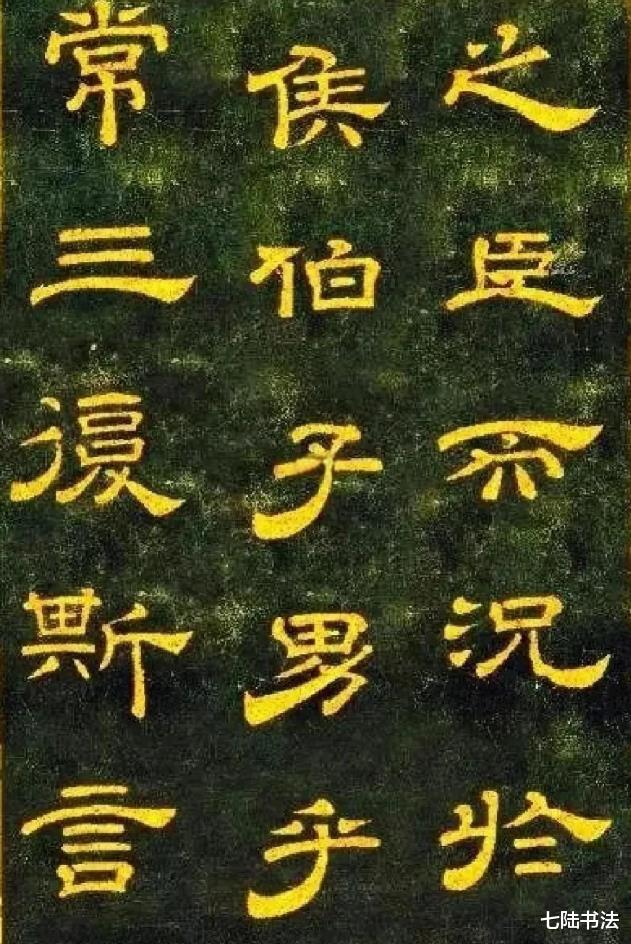 之臣而況於
侯伯子男乎
常三復斯言
七陆书法